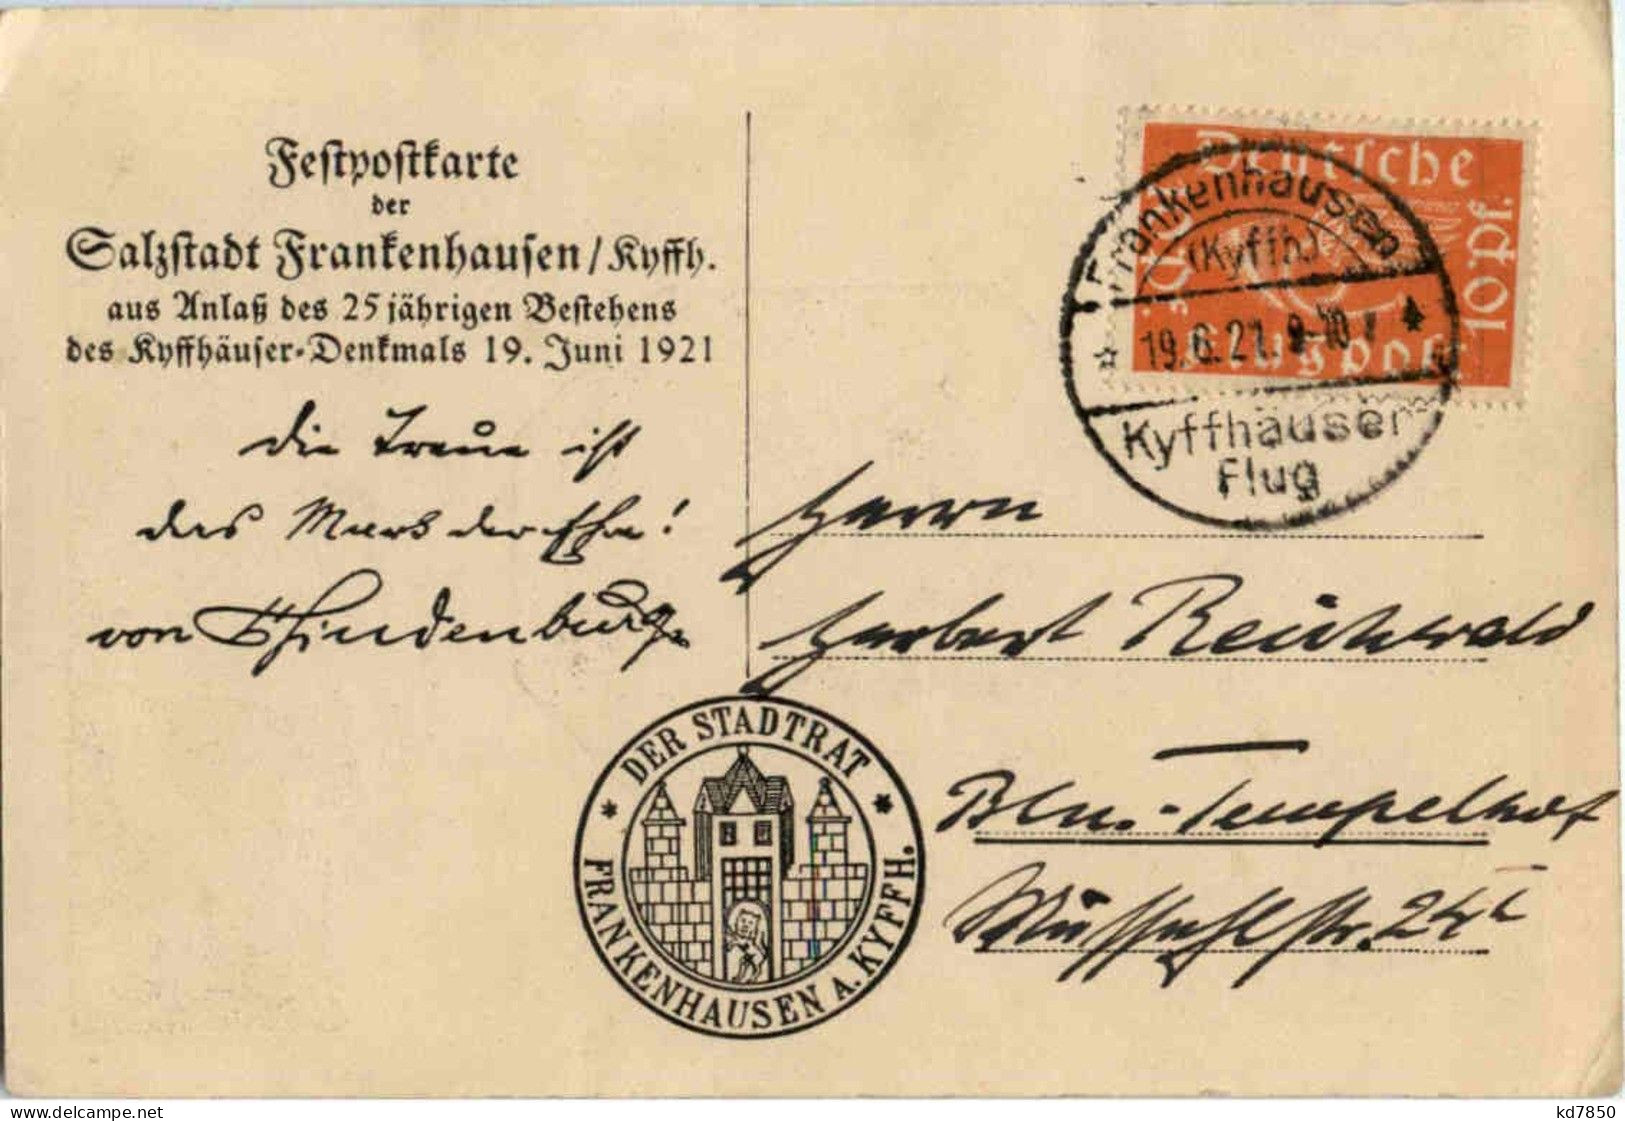 Festpostkarte
der
Salzstadt Frankenhausen / Kyffh.
aus Anlaß des 25 jährigen Bestehens
des Kyffhäuser-Denkmals 19. Juni 1921
die Treue ist
das Mark der Ehre!
von Hindenburg
Deutsche
10 Pf.
Flugpost
Frankenhausen
(Kyffh)
19.6.21. 9-10 V
Kyffhäuser
Flug
Herrn
Herbert
Bln.-Tempelhof
str. 24
DER STADTRAT
FRANKENHAUSEN A. KYFFH.
kd7850